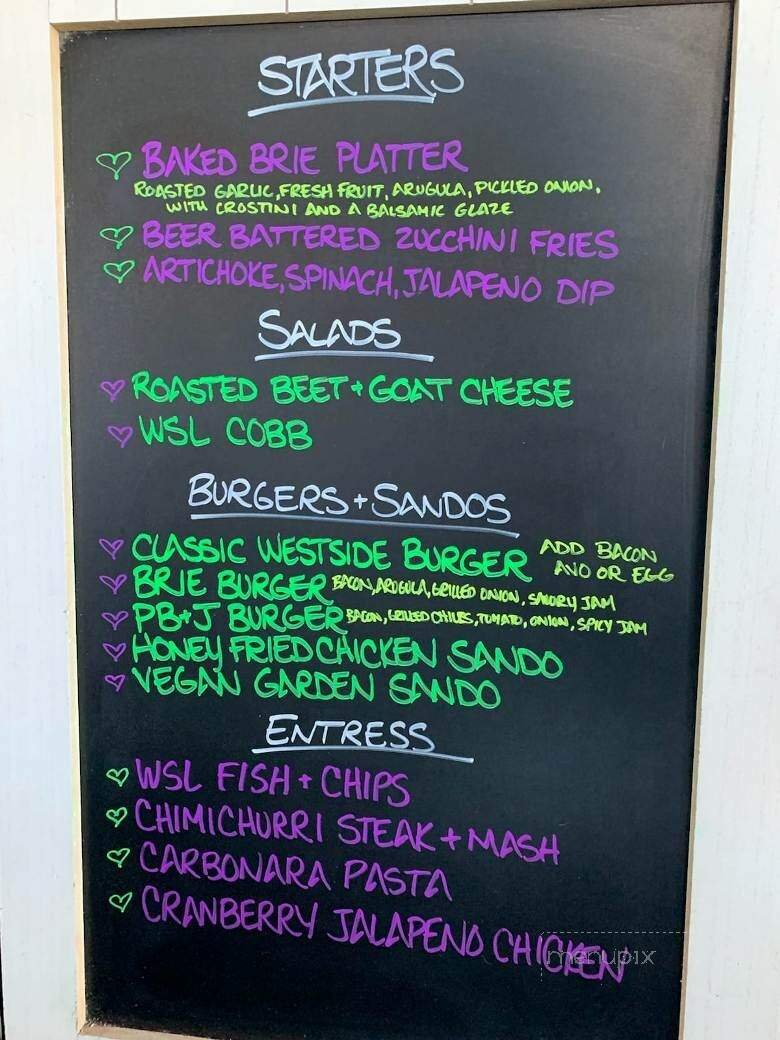 STARTERS
BAKED BRIE PLATTER
ROASTED GARLIC, FRESH FRUIT, ARUGULA, PICKLED ONION,
WITH CROSTINI AND A BALSAMIC GLAZE
BEER BATTERED ZUCCHINI FRIES
ARTICHOKE, SPINACH, JALAPENO DIP
SALADS
ROASTED BEET + GOAT CHEESE
WSL COBB
BURGERS + SANDOS
CLASSIC WESTSIDE BURGER ADD BACON
AVO OR EGG
BRIE BURGER BACON, ARUGULA, GRILLED ONION, SAVORY JAM
PB+J BURGER BACON, GRILLED CHILIES, TOMATO, ONION, SPICY JAM
HONEY FRIED CHICKEN SANDO
VEGAN GARDEN SANDO
ENTRESS
WSL FISH + CHIPS
CHIMICHURRI STEAK + MASH
CARBONARA PASTA
CRANBERRY JALAPENO CHICKEN
menupix